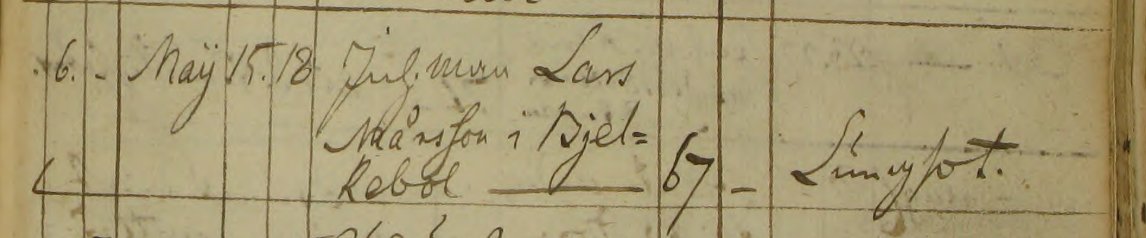 6. - Maÿ 15. 18 Inh. man Lars
Månsson i Bjel=
kebol — 67 - Lungsot.